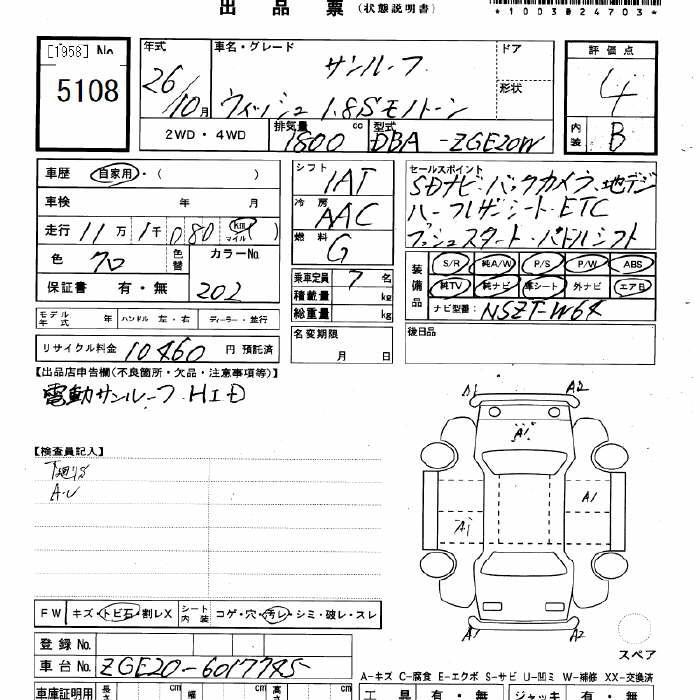 出品票 (状態説明書)
*1003024703*
[1958] No 5108
年式 26/10月
車名・グレード サンルーフ
ウィッシュ 1.8S モノトーン
ドア
形状
評価点 4
内装 B
2WD・4WD 排気量 1800 cc 型式 DBA-ZGE20W
車歴 自家用・( )
車検 年 月
走行 11万 1千 080 km マイル )
色 クロ 色替 カラーNo. 202
保証書 有・無
シフト IAT
冷房 AAC
燃料 G
乗車定員 7 名
積載量 kg
総重量 kg
セールスポイント
SDナビ・バックカメラ、地デジ
ハーフレザーシート・ETC
プッシュスタート・パドルシフト
装備品 S/R 純A/W P/S P/W ABS
純TV 純ナビ 革シート 外ナビ エアB
ナビ型番: NSZT-W64
モデル年式 年 ハンドル 左・右 ディーラー・並行
名変期限 月 日
後日品
リサイクル料金 10460 円 預託済
【出品店申告欄(不良箇所・欠品・注意事項等)】
電動サンルーフ HID
【検査員記入】
A・U
A1 A2
A1
A1
A1
A1 A2
スペア
FW キズ・トビ石・割レX シート内装 コゲ・穴・汚レ・シミ・破レ・スレ
登録No.
車台No. ZGE20-6017745
A-キズ C-腐食 E-エクボ S-サビ U-凹ミ W-補修 XX-交換済
車庫証明用 長さ cm 幅 cm 高さ cm
工具 有・無 ジャッキ 有・無